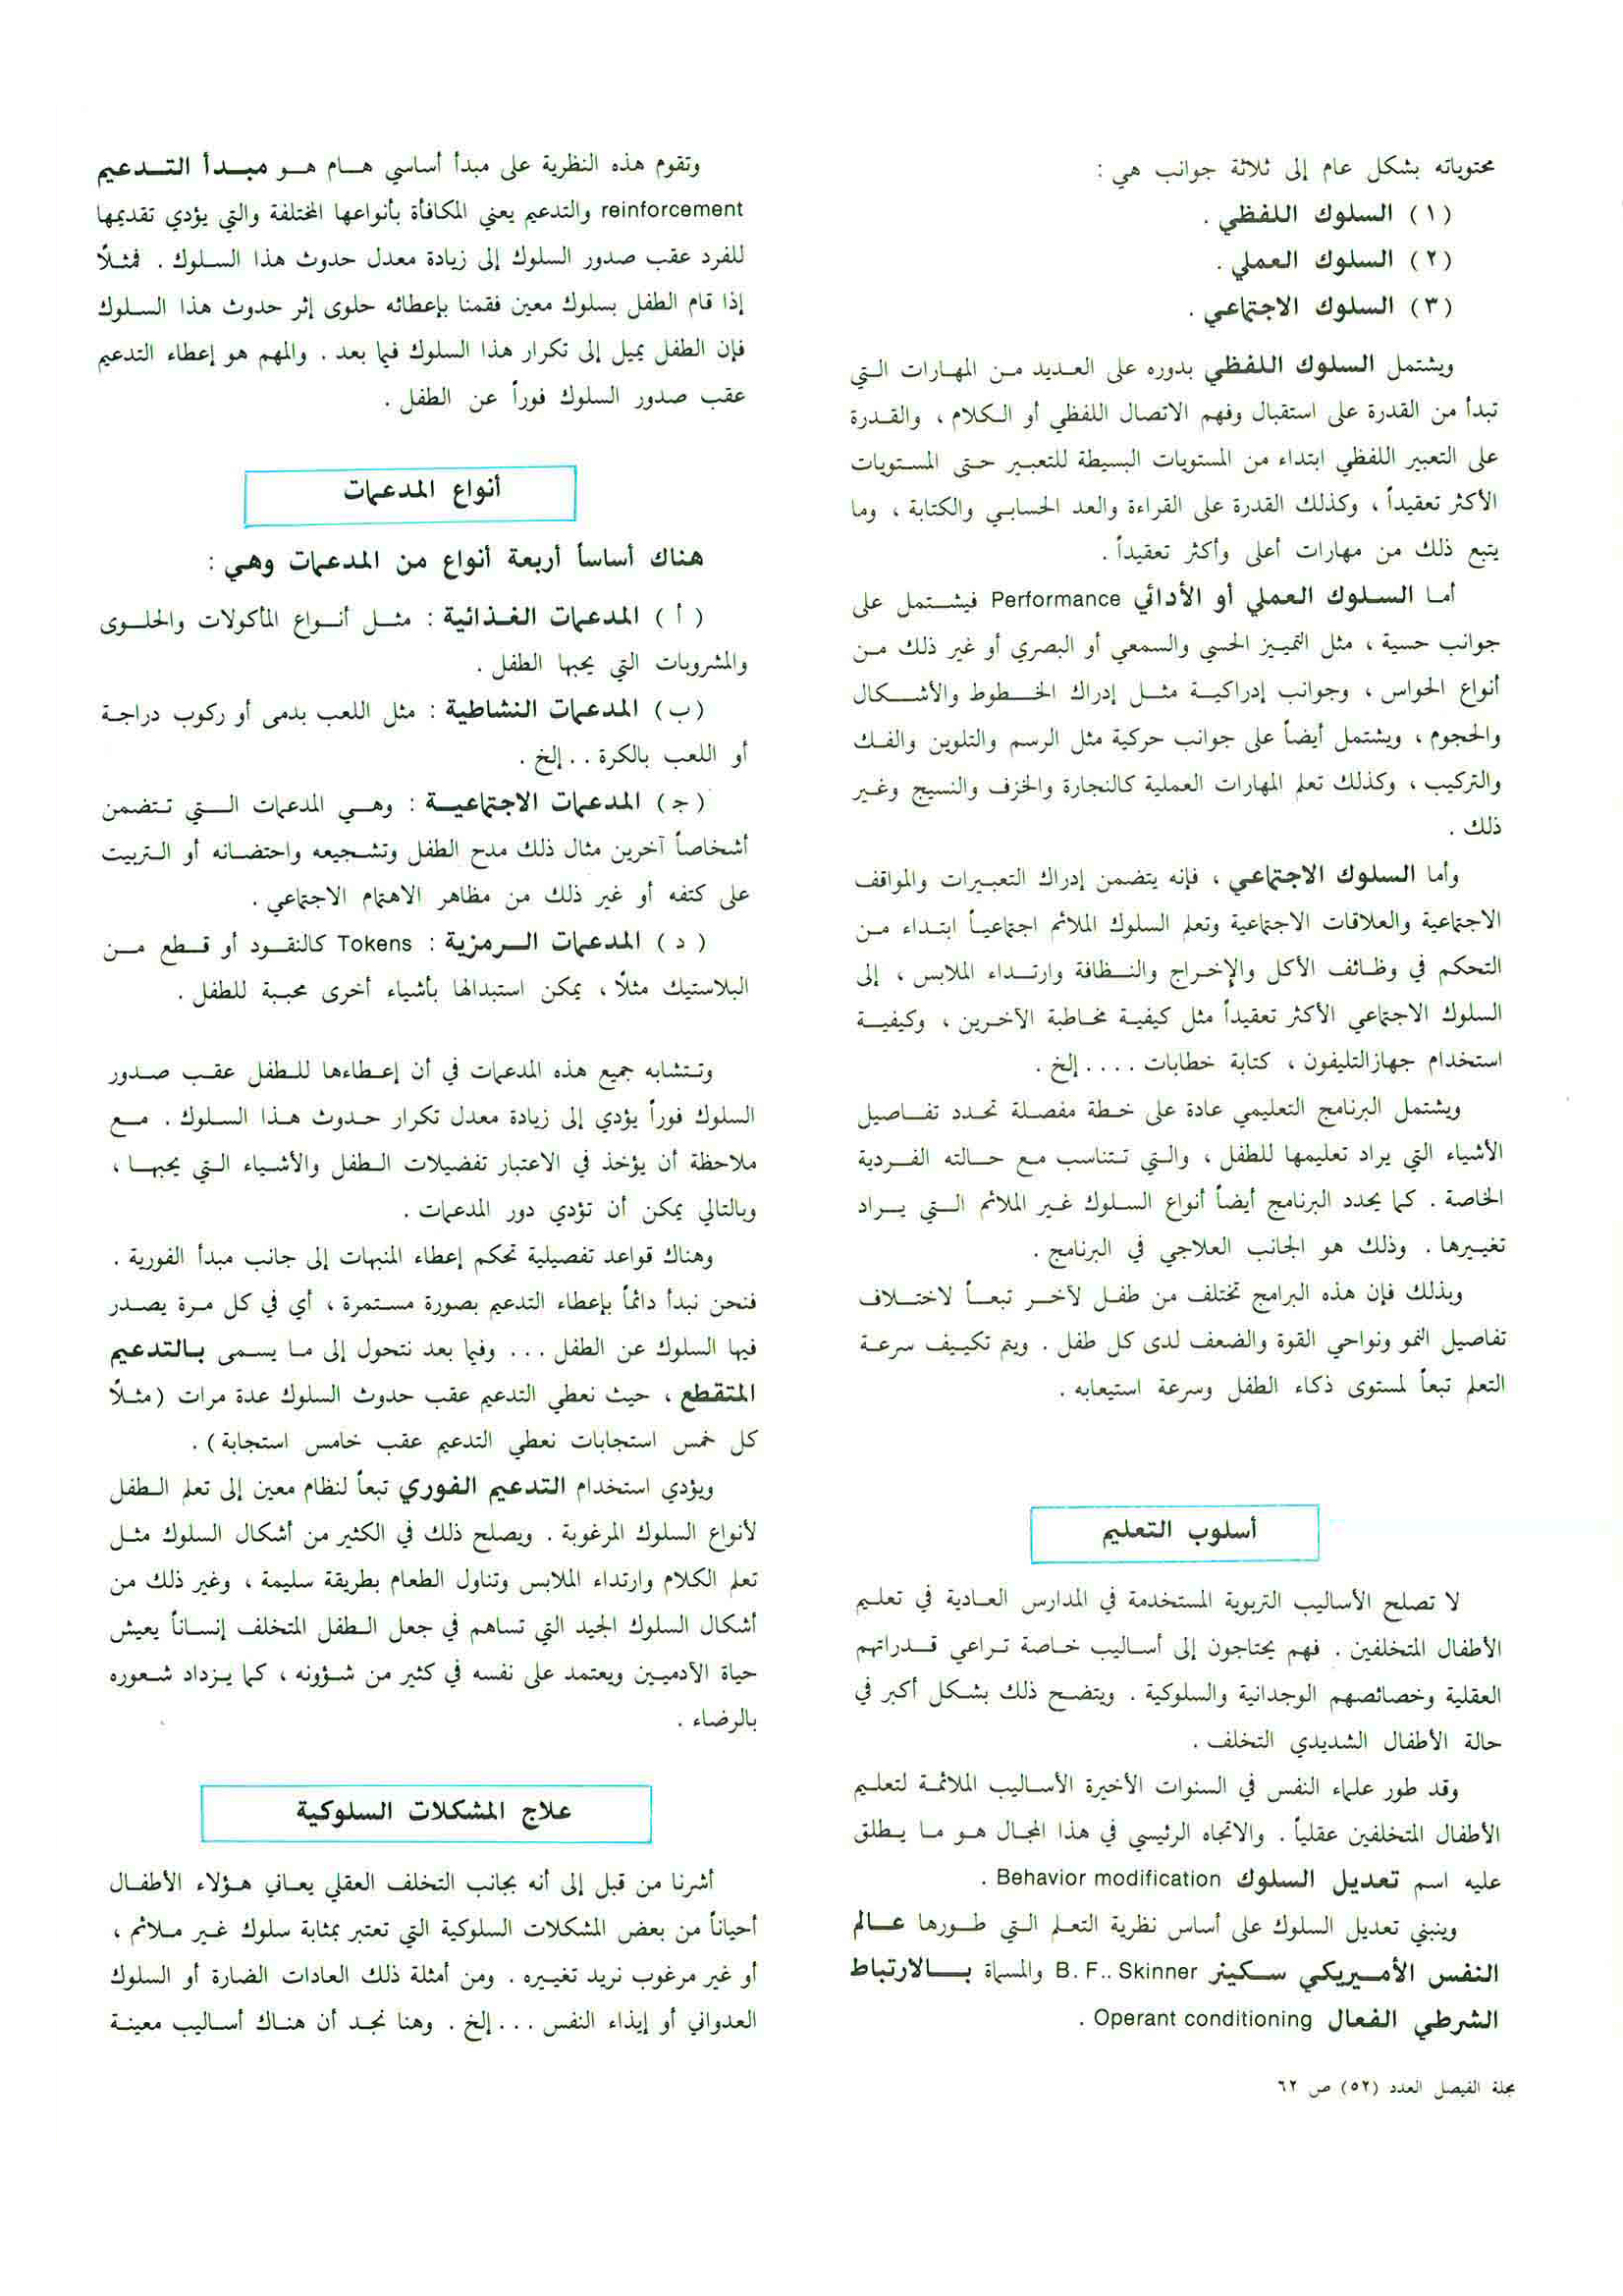 محتوياته بشكل عام إلى ثلاثة جوانب هي :
(١) السلوك اللفظي .
(٢) السلوك العملي .
(٣) السلوك الاجتماعي .
ويشتمل السلوك اللفظي بدوره على العديد من المهارات التي
تبدأ من القدرة على استقبال وفهم الاتصال اللفظي أو الكلام ، والقدرة
على التعبير اللفظي ابتداء من المستويات البسيطة للتعبير حتى المستويات
الأكثر تعقيداً ، وكذلك القدرة على القراءة والعد الحسابي والكتابة ، وما
يتبع ذلك من مهارات أعلى وأكثر تعقيداً .
أما السلوك العملي أو الأدائي Performance فيشتمل على
جوانب حسية ، مثل التمييز الحسي والسمعي أو البصري أو غير ذلك من
أنواع الحواس ، وجوانب إدراكية مثل إدراك الخطوط والأشكال
والحجوم ، ويشتمل أيضاً على جوانب حركية مثل الرسم والتلوين والفك
والتركيب ، وكذلك تعلم المهارات العملية كالنجارة والخزف والنسيج وغير
ذلك .
وأما السلوك الاجتماعي ، فإنه يتضمن إدراك التعبيرات والمواقف
الاجتماعية والعلاقات الاجتماعية وتعلم السلوك الملائم اجتماعياً ابتداء من
التحكم في وظائف الأكل والإخراج والنظافة وارتداء الملابس ، إلى
السلوك الاجتماعي الأكثر تعقيداً مثل كيفية مخاطبة الآخرين ، وكيفية
استخدام جهازالتليفون ، كتابة خطابات .... إلخ .
ويشتمل البرنامج التعليمي عادة على خطة مفصلة تحدد تفاصيل
الأشياء التي يراد تعليمها للطفل ، والتي تتناسب مع حالته الفردية
الخاصة . كما يحدد البرنامج أيضاً أنواع السلوك غير الملائم التي يراد
تغييرها . وذلك هو الجانب العلاجي في البرنامج .
وبذلك فإن هذه البرامج تختلف من طفل لآخر تبعاً لاختلاف
تفاصيل النمو ونواحي القوة والضعف لدى كل طفل . ويتم تكييف سرعة
التعلم تبعاً لمستوى ذكاء الطفل وسرعة استيعابه .
أسلوب التعليم
لا تصلح الأساليب التربوية المستخدمة في المدارس العادية في تعليم
الأطفال المتخلفين . فهم يحتاجون إلى أساليب خاصة تراعي قدراتهم
العقلية وخصائصهم الوجدانية والسلوكية . ويتضح ذلك بشكل أكبر في
حالة الأطفال الشديدي التخلف .
وقد طور علماء النفس في السنوات الأخيرة الأساليب الملائمة لتعليم
الأطفال المتخلفين عقلياً . والاتجاه الرئيسي في هذا المجال هو ما يطلق
عليه اسم تعديل السلوك Behavior modification .
وينبني تعديل السلوك على أساس نظرية التعلم التي طورها عالم
النفس الأمريكي سكينر B. F.. Skinner والمسماة بالارتباط
الشرطي الفعال Operant conditioning .
مجلة الفيصل العدد (٥٢) ص ٦٢
وتقوم هذه النظرية على مبدأ أساسي هام هو مبدأ التدعيم
reinforcement والتدعيم يعني المكافأة بأنواعها المختلفة والتي يؤدي تقديمها
للفرد عقب صدور السلوك إلى زيادة معدل حدوث هذا السلوك . فمثلاً
إذا قام الطفل بسلوك معين فقمنا بإعطائه حلوى إثر حدوث هذا السلوك
فإن الطفل يميل إلى تكرار هذا السلوك فيما بعد . والمهم هو إعطاء التدعيم
عقب صدور السلوك فوراً عن الطفل .
أنواع المدعمات
هناك أساساً أربعة أنواع من المدعمات وهي :
( أ ) المدعمات الغذائية : مثل أنواع المأكولات والحلوى
والمشروبات التي يحبها الطفل .
(ب) المدعمات النشاطية : مثل اللعب بدمى أو ركوب دراجة
أو اللعب بالكرة .. إلخ .
(ج) المدعمات الاجتماعية : وهي المدعمات التي تتضمن
أشخاصاً آخرين مثال ذلك مدح الطفل وتشجيعه واحتضانه أو التربيت
على كتفه أو غير ذلك من مظاهر الاهتمام الاجتماعي .
( د ) المدعمات الرمزية : Tokens كالنقود أو قطع من
البلاستيك مثلاً ، يمكن استبدالها بأشياء أخرى محببة للطفل .
وتتشابه جميع هذه المدعمات في أن إعطاءها للطفل عقب صدور
السلوك فوراً يؤدي إلى زيادة معدل تكرار حدوث هذا السلوك . مع
ملاحظة أن يؤخذ في الاعتبار تفضيلات الطفل والأشياء التي يحبها ،
وبالتالي يمكن أن تؤدي دور المدعمات .
وهناك قواعد تفصيلية تحكم إعطاء المنبهات إلى جانب مبدأ الفورية .
فنحن نبدأ دائماً بإعطاء التدعيم بصورة مستمرة ، أي في كل مرة يصدر
فيها السلوك عن الطفل ... وفيما بعد نتحول إلى ما يسمى بالتدعيم
المتقطع ، حيث نعطي التدعيم عقب حدوث السلوك عدة مرات (مثلاً
كل خمس استجابات نعطي التدعيم عقب خامس استجابة) .
ويؤدي استخدام التدعيم الفوري تبعاً لنظام معين إلى تعلم الطفل
لأنواع السلوك المرغوبة . ويصلح ذلك في الكثير من أشكال السلوك مثل
تعلم الكلام وارتداء الملابس وتناول الطعام بطريقة سليمة ، وغير ذلك من
أشكال السلوك الجيد التي تساهم في جعل الطفل المتخلف إنساناً يعيش
حياة الآدميين ويعتمد على نفسه في كثير من شؤونه ، كما يزداد شعوره
بالرضاء .
علاج المشكلات السلوكية
أشرنا من قبل إلى أنه بجانب التخلف العقلي يعاني هؤلاء الأطفال
أحياناً من بعض المشكلات السلوكية التي تعتبر بمثابة سلوك غير ملائم ،
أو غير مرغوب نريد تغييره . ومن أمثلة ذلك العادات الضارة أو السلوك
العدواني أو إيذاء النفس ... إلخ . وهنا نجد أن هناك أساليب معينة